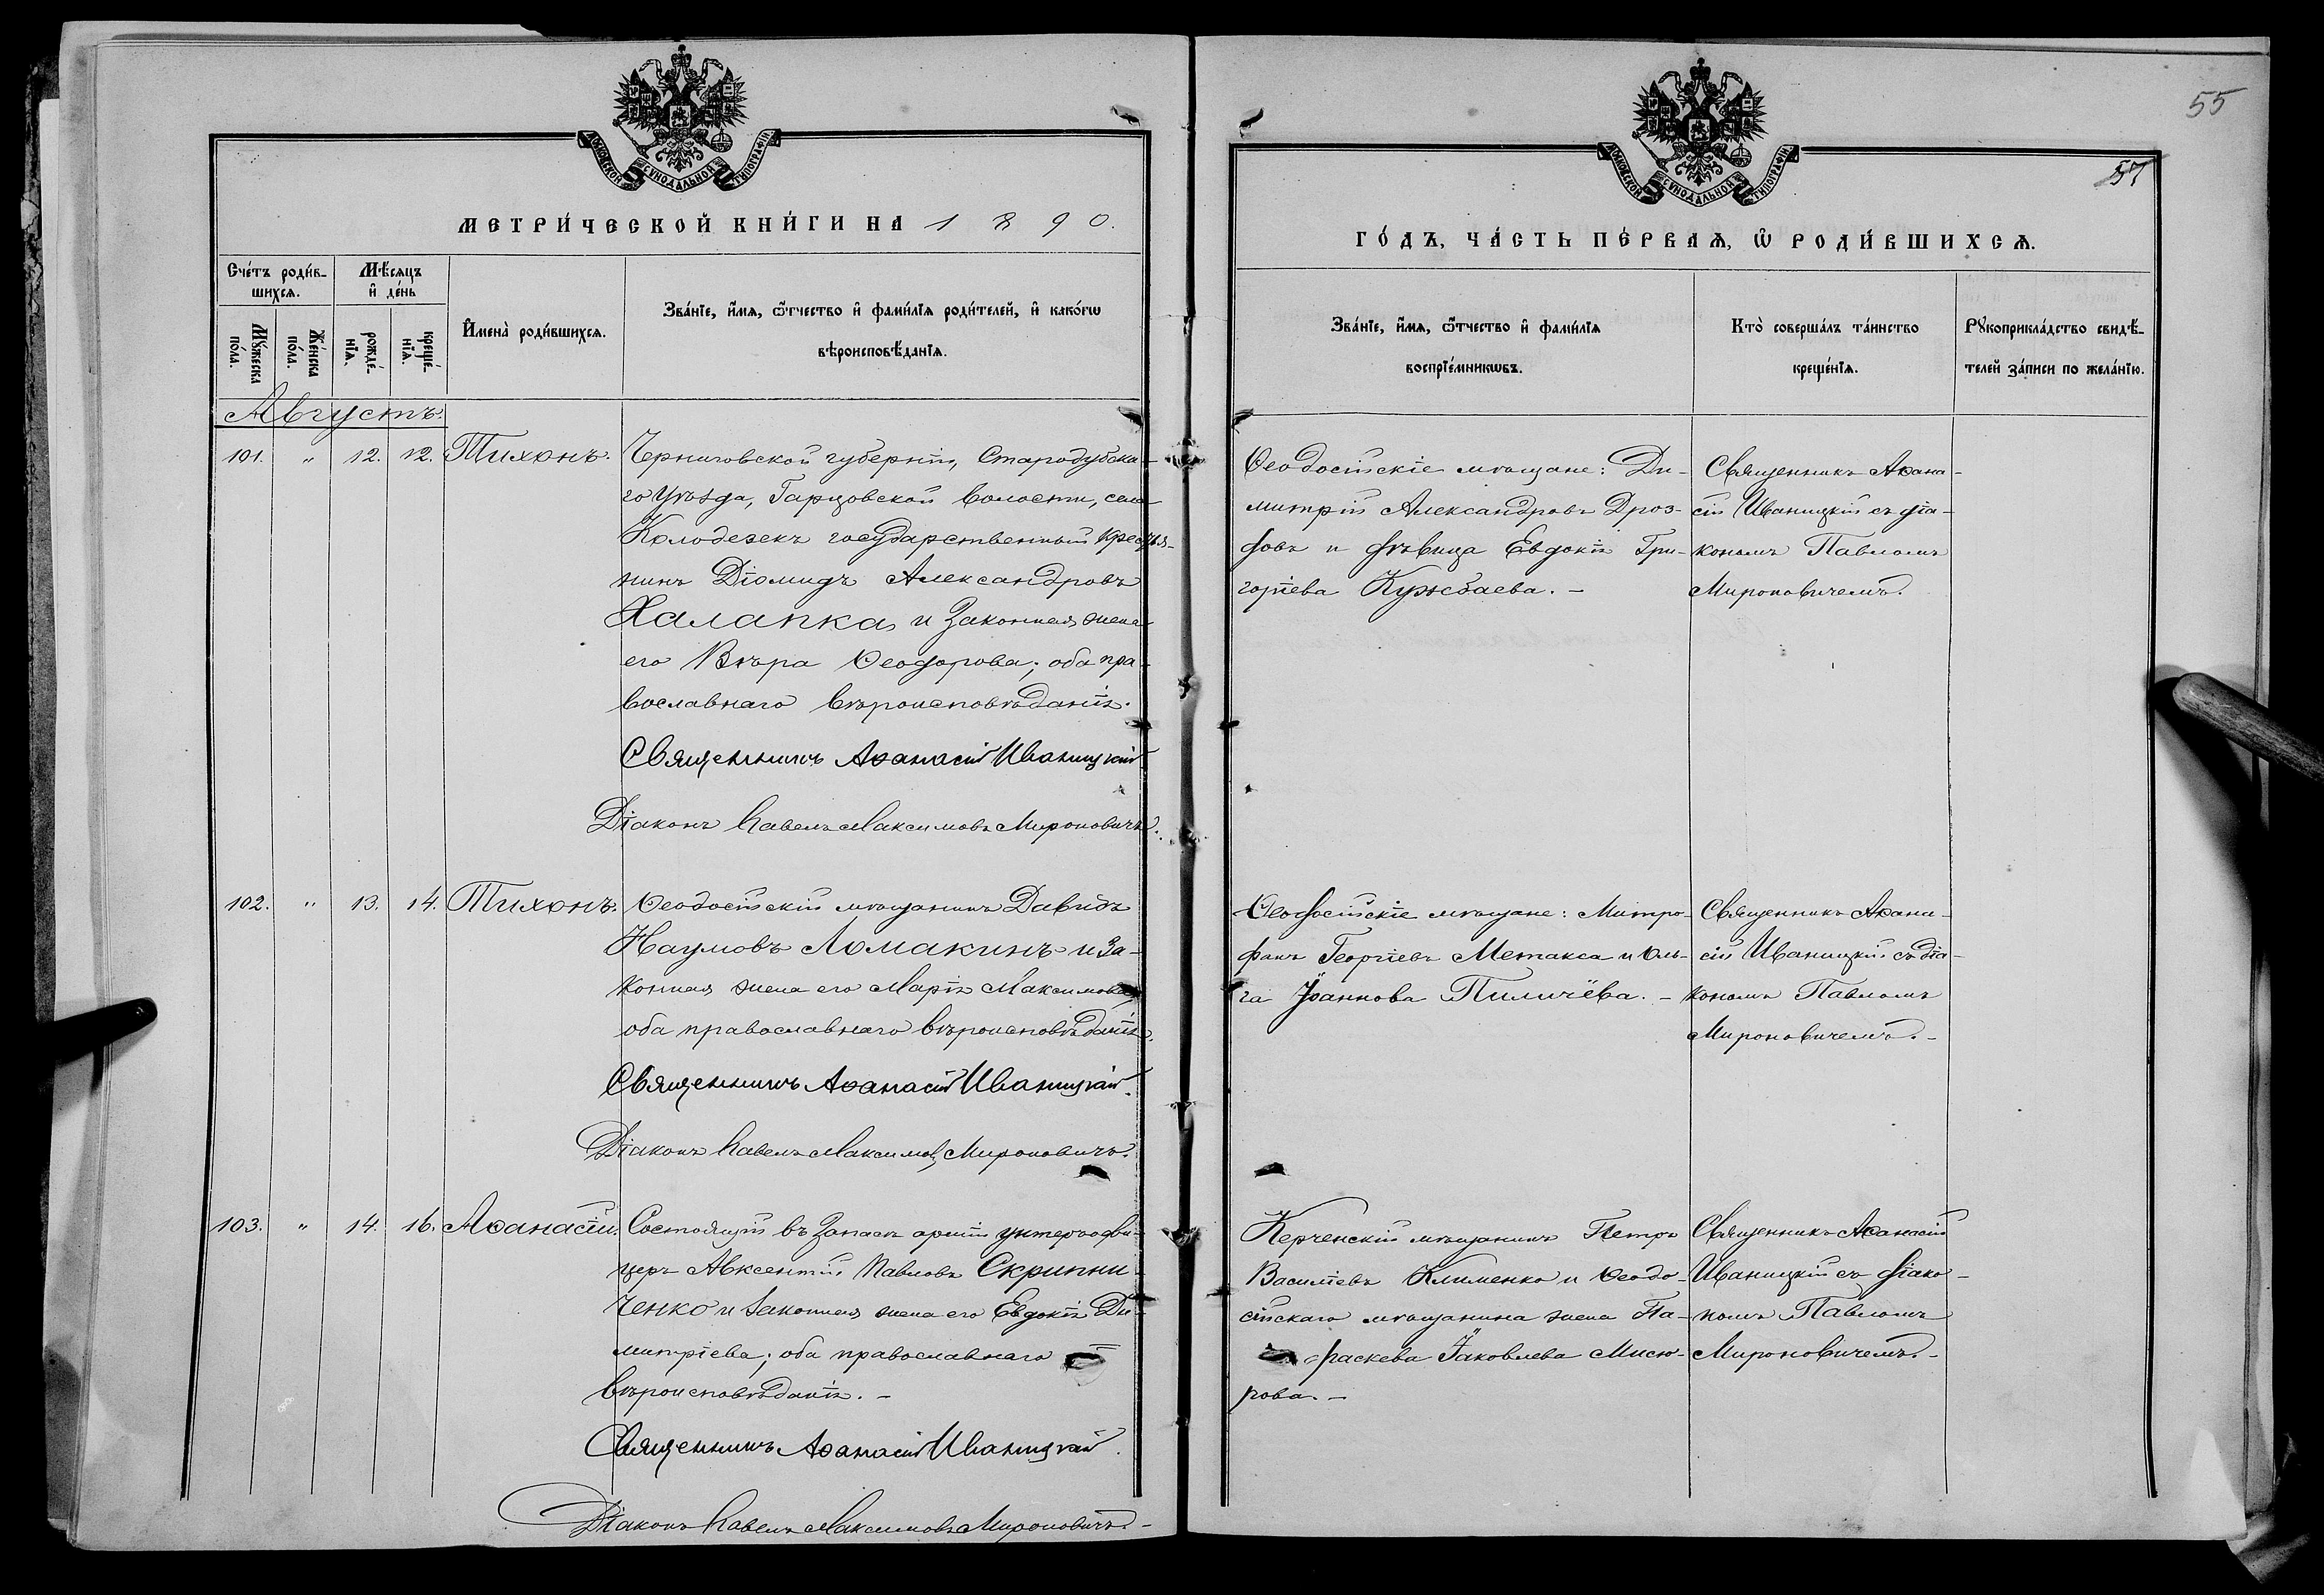 55
57
МОСКОВСКОЙ СѴНОДАЛЬНОЙ ТИПОГРАФІИ
МОСКОВСКОЙ СѴНОДАЛЬНОЙ ТИПОГРАФІИ
МЕТРИ́ЧЕСКОЙ КНИ́ГИ НА 1890.
ГО́ДЪ, ЧА́СТЬ ПЕ́РВАѦ, Ѽ РОДИ́ВШИХСѦ.
Сче́тъ роди́в-
шихсѧ.
Мѣ́сѧцъ
и҆ де́нь
Мꙋ́жеска
по́ла.
Же́нска
по́ла.
рожде́-
нїѧ.
креще́-
нїѧ.
И҆мена̀ роди́вшихсѧ.
Зва́нїе, и҆́мѧ, ѻ҆́тчество и҆ фами́лїѧ роди́телей, и҆ како́гѡ
вѣроисповѣ́данїѧ.
Зва́нїе, и҆́мѧ, ѻ҆́тчество и҆ фами́лїѧ
воспрїе́мникѡвъ.
Кто̀ соверша́лъ та́инство
креще́нїѧ.
Рꙋкоприкла́дство свидѣ́-
телей за́писи по жела́нїю.
Августъ.
101. " 12. 12. Тихонъ.
Черниговской губерніи, Стародубска-
го уѣзда, Гарцовской волости, села
Колодезекъ государственный крестья-
нинъ Діомидъ Александровъ
Халапка и законная жена
его Вѣра Ѳеодорова; оба пра-
вославнаго вѣроисповѣданія.
Священникъ Аѳанасій Иваницкій
Діаконъ Павелъ Максимовъ Мироновичъ.
Ѳеодосійскіе мѣщане: Ди-
митрій Александровъ Дроз-
довъ и дѣвица Евдокія Гри-
горіева Кужбаева. -
Священникъ Аѳана-
сій Иваницкій съ діа-
кономъ Павломъ
Мироновичемъ.
102. " 13. 14. Тихонъ.
Ѳеодосійскій мѣщанинъ Давидъ
Наумовъ Ломакинъ и за-
конная жена его Марія Максимова;
оба православнаго вѣроисповѣданія.
Священникъ Аѳанасій Иваницкій.
Діаконъ Павелъ Максимовъ Мироновичъ.
Ѳеодосійскіе мѣщане: Митро-
фанъ Георгіевъ Метакса и Оль-
га Іоаннова Пиличёва. -
Священникъ Аѳана-
сій Иваницкій съ діа-
кономъ Павломъ
Мироновичемъ. -
103. " 14. 16. Аѳанасій.
Состоящій въ запасѣ арміи унтеръ-офи-
церъ Авксентій Павловъ Скрипни-
ченко и законная жена его Евдокія Ди-
митріева; оба православнаго
вѣроисповѣданія. -
Священникъ Аѳанасій Иваницкій.
Діаконъ Павелъ Максимовъ Мироновичъ. -
Керченскій мѣщанинъ Петръ
Василіевъ Клименко и Ѳеодо-
сійскаго мѣщанина жена Па-
раскева Іаковлева Мисю-
рова. -
Священникъ Аѳанасій
Иваницкій съ діако-
номъ Павломъ
Мироновичемъ. -